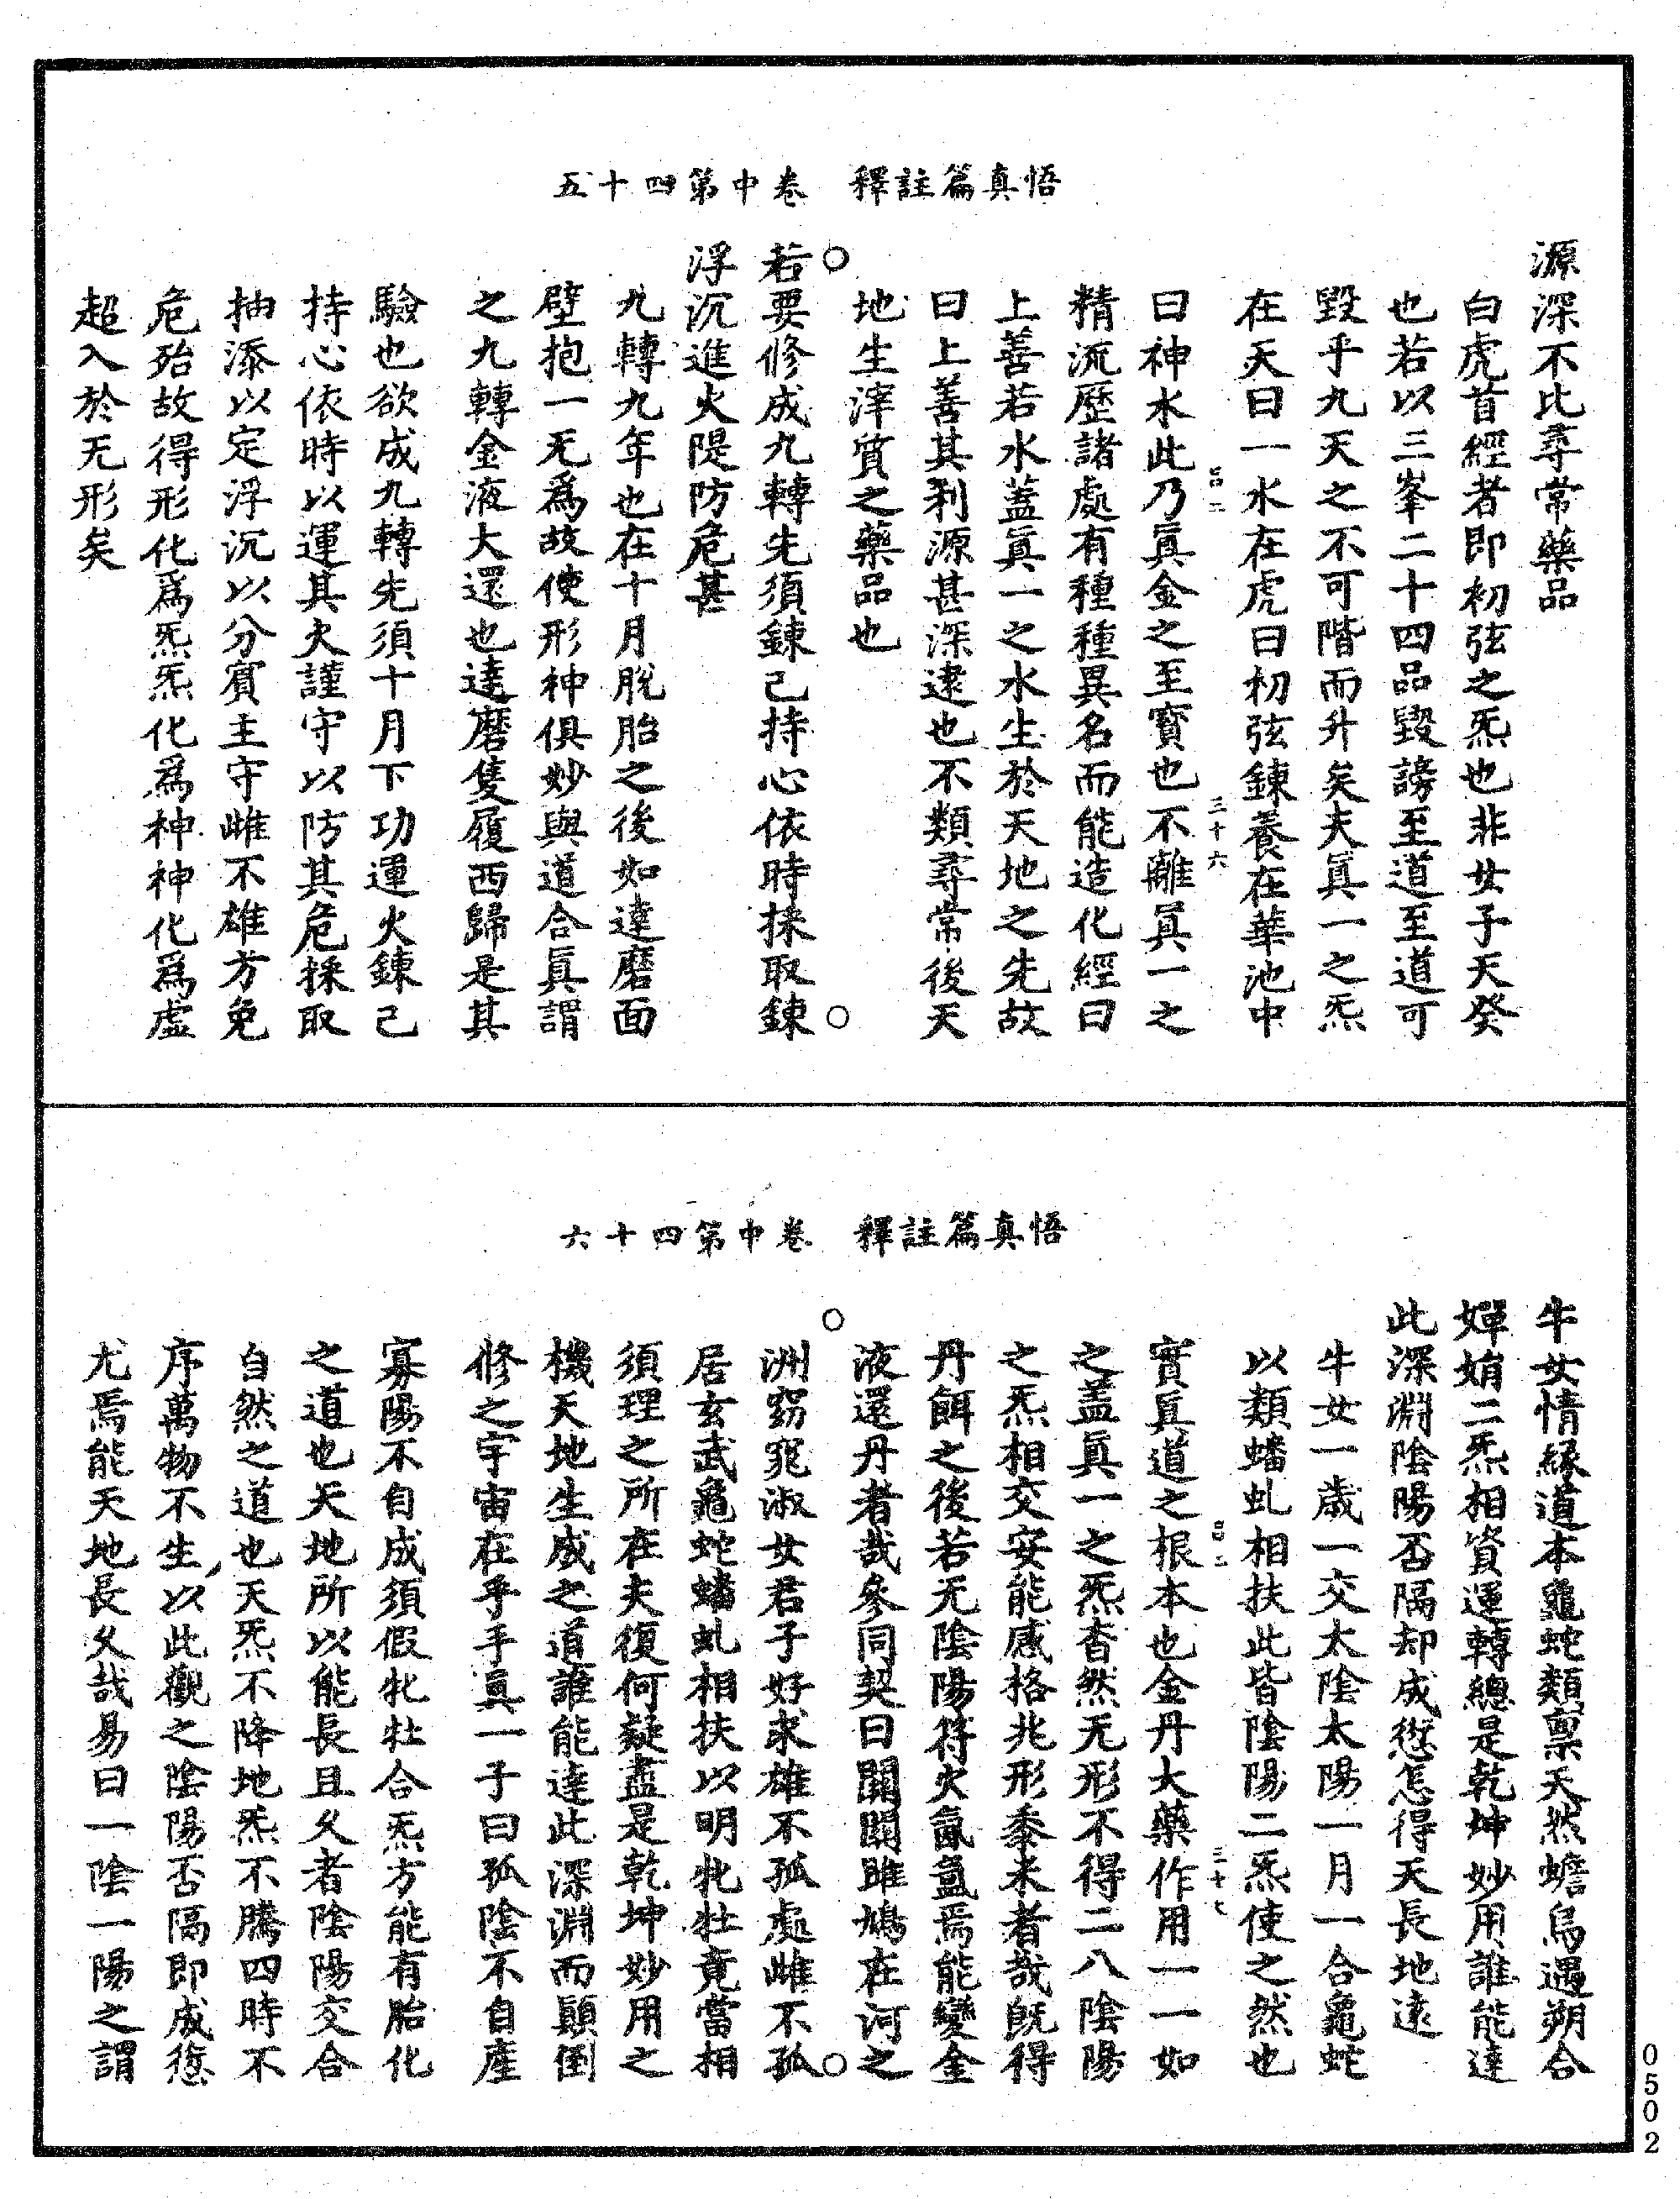 悟真篇註釋　卷中第四十五
源深不比尋常藥品
白虎首經者即初弦之炁也非女子天癸
也若以三峯二十四品毀謗至道至道可
毀乎九天之不可階而升矣夫眞一之炁
在天曰一水在虎曰初弦鍊養在華池中
曰神水此乃眞金之至寳也不離眞一之
精流歷諸處有種種異名而能造化經曰
上善若水蓋眞一之水生於天地之先故
曰上善其利源甚深逮也不類尋常後天
地生滓質之藥品也
若要修成九轉先須鍊己持心依時採取鍊
浮沉進火隄防危甚
九轉九年也在十月脫胎之後如達磨面
壁抱一无爲故使形神俱妙與道合眞謂
之九轉金液大還也達磨隻履西歸是其
驗也欲成九轉先須十月下功運火鍊己
持心依時以運其火謹守以防其危採取
抽添以定浮沉以分賓主守雌不雄方免
危殆故得形化爲炁炁化爲神神化爲虛
超入於无形矣
三十六
悟真篇註釋　卷中第四十六
牛女情緣道本龜蛇類禀天然蟾烏遇朔合
嬋娟二炁相資運轉總是乾坤妙用誰能達
此深淵陰陽否隔却成愆怎得天長地遠
牛女一歲一交太陰太陽一月一合龜蛇
以類蟠虬相扶此皆陰陽二炁使之然也
實眞道之根本也金丹大藥作用一一如
之蓋眞一之炁杳然无形不得二八陰陽
之炁相交安能感格兆形黍米者哉旣得
丹餌之後若无陰陽符火氤氳焉能變金
液還丹者哉參同契曰關關雎鳩在河之
洲窈窕淑女君子好求雄不孤處雌不孤
居玄武龜蛇蟠虬相扶以明牝牡竟當相
須理之所在夫復何疑盡是乾坤妙用之
機天地生成之道誰能達此深淵而顚倒
修之宇宙在乎手眞一子曰孤陰不自産
寡陽不自成須假牝牡合炁方能有胎化
之道也天地所以能長且久者陰陽交合
自然之道也天炁不降地炁不騰四時不
序萬物不生以此觀之陰陽否隔即成愆
尤焉能天地長久哉易曰一陰一陽之謂
三十七
0502